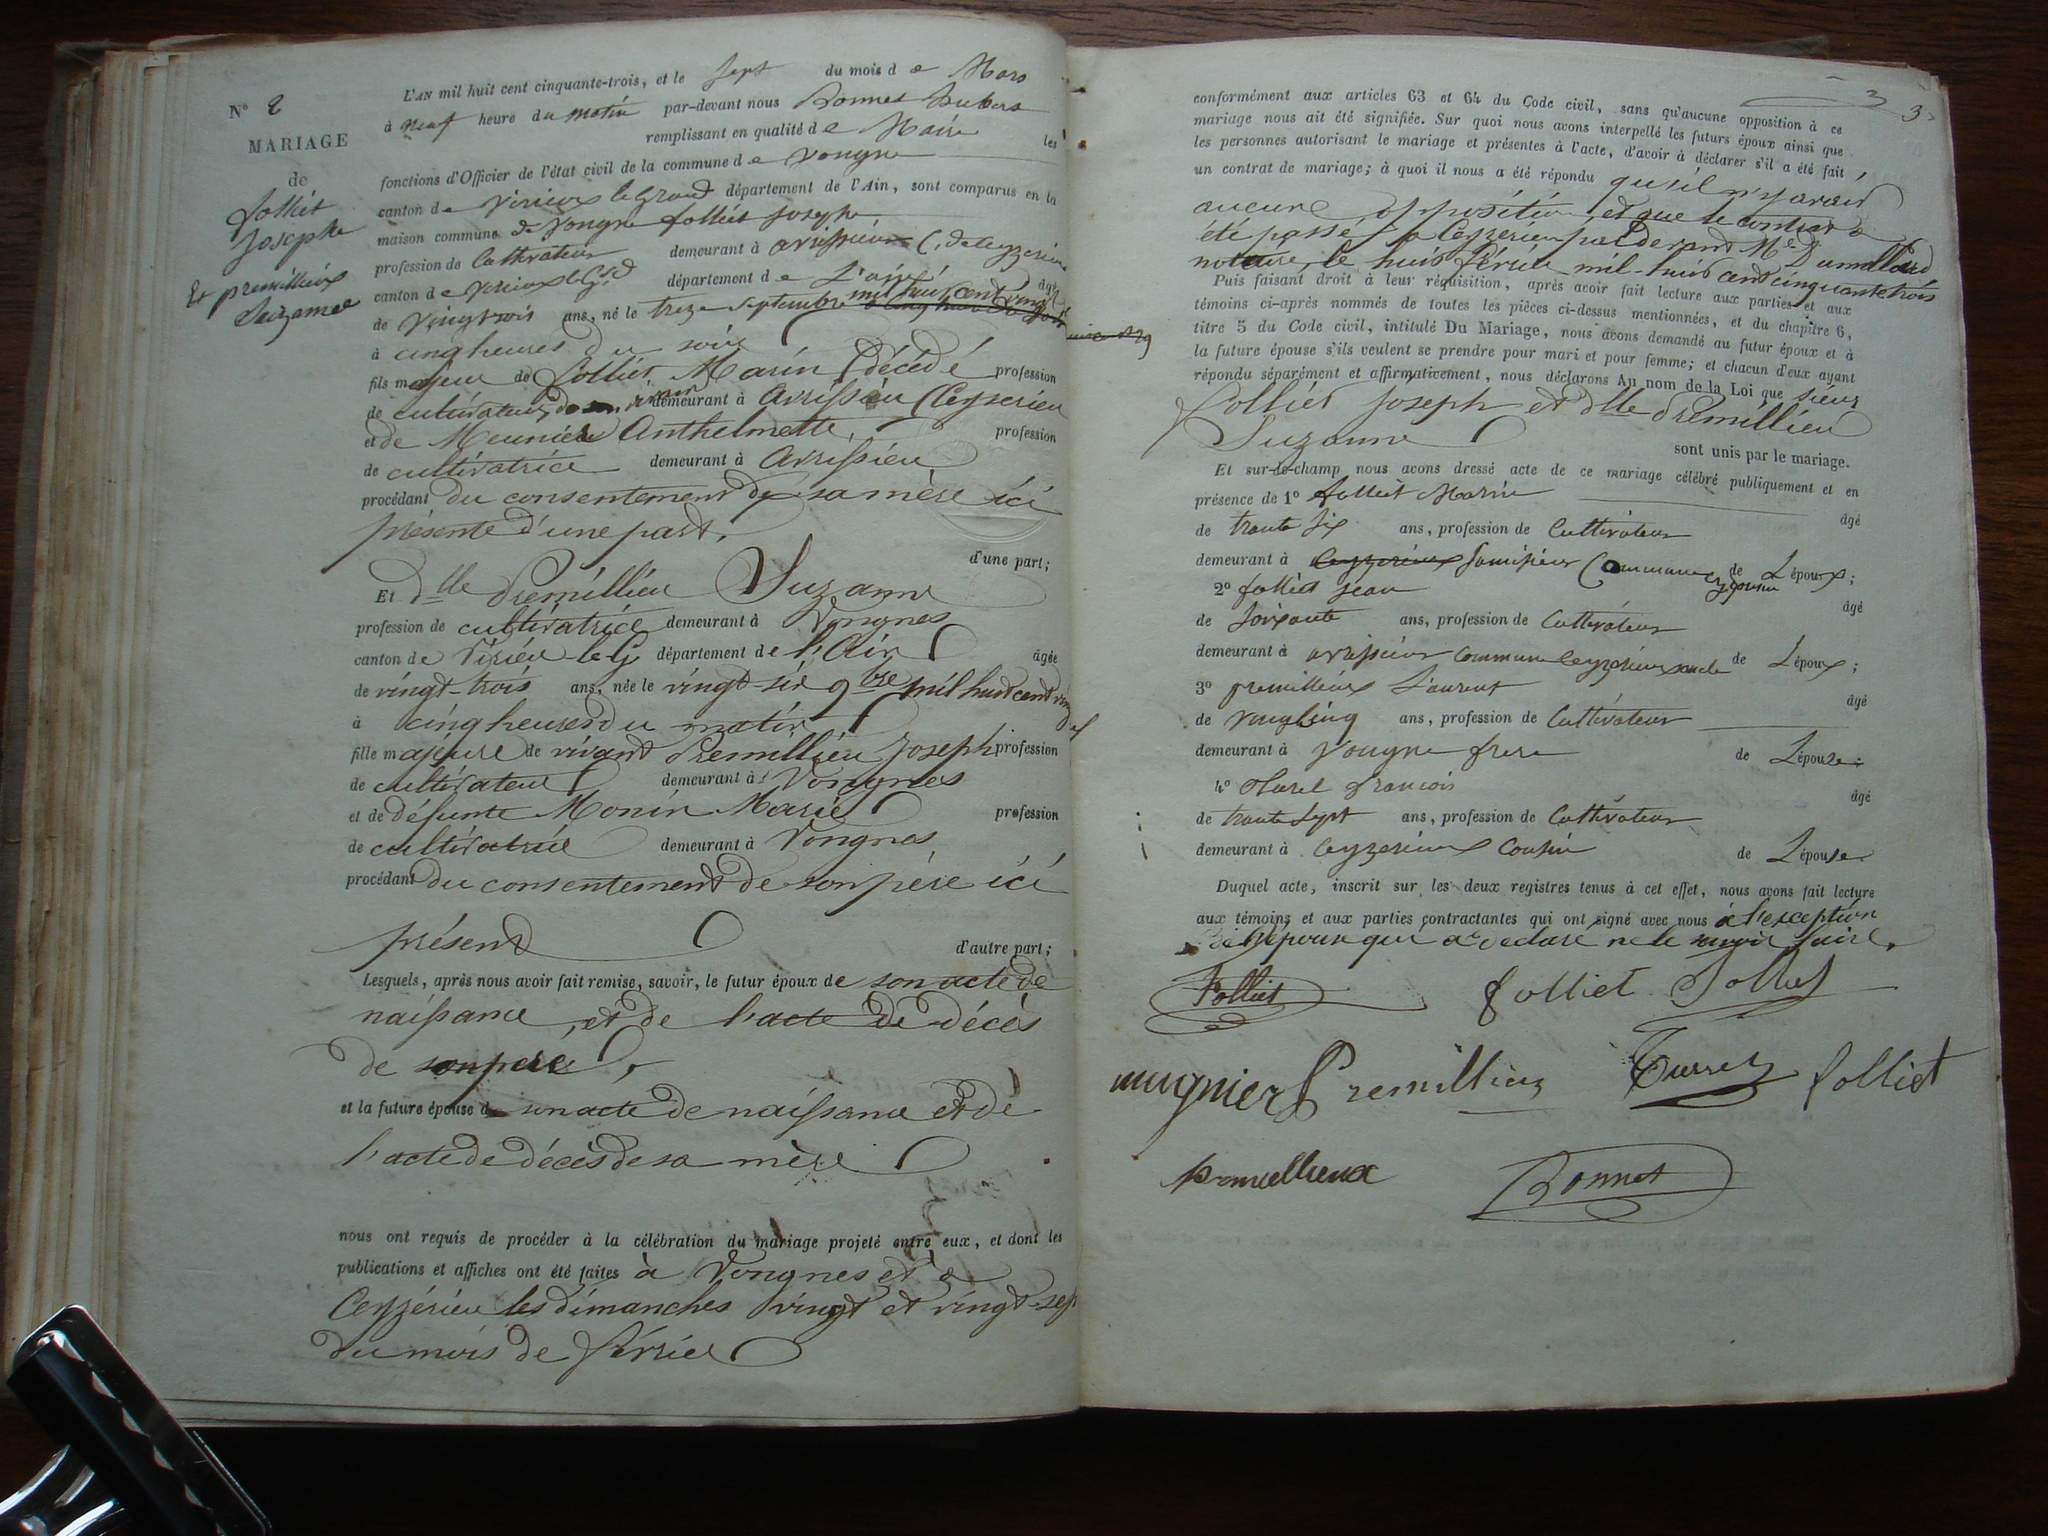 N° 2
MARIAGE
de
folliet
Joseph
Et premillieux
Suzanne
L'AN mil huit cent cinquante-trois, et le sept du mois de Mars
à neuf heure du matin par-devant nous Bonnet
remplissant en qualité de Maire les
fonctions d'Officier de l'état civil de la commune de Vongne
canton de Virieux le Grand département de l'Ain, sont comparus en la
maison commune de Vongne folliet Joseph
profession de Cultivateur demeurant à avrissieux C. de Ceyzerieux
canton de Virieux le Gd département de L'ain âgé
de Vingt trois ans, né le treze septembre mil huit cent vingt
à cinq heures du soir
fils majeur de Folliet Marin décédé profession
de cultivateur de son vivant demeurant à Avrissieu (Ceyzerieu
et de Meunier Anthelmette, profession
de cultivatrice demeurant à Avrissieu
procédant du consentement de sa mère ici
présente d'une part,
d'une part;
Et Dlle Premillieu Suzanne
profession de cultivatrice demeurant à Vongnes
canton de Virieu-le-G département de l'Ain âgée
de vingt-trois ans, née le vingt-six 9bre mil huit cent vingt
à cinq heures du matin
fille majeure de vivant Premillieu Joseph profession
de cultivateur demeurant à Vongnes
et de défunte Monin Marie profession
de cultivatrice demeurant à Vongnes
procédant du consentement de son père ici
présent d'autre part;
Lesquels, après nous avoir fait remise, savoir, le futur époux de son acte de
naissance, et de l'acte de décès
de son père,
et la future épouse de son acte de naissance et de
l'acte de décès de sa mère
nous ont requis de procéder à la célébration du mariage projeté entre eux, et dont les
publications et affiches ont été faites à Vongnes et à
Ceyzérieu les dimanches vingt et vingt-sept
du mois de février
3
conformément aux articles 63 et 64 du Code civil, sans qu'aucune opposition à ce
mariage nous ait été signifiée. Sur quoi nous avons interpellé les futurs époux ainsi que
les personnes autorisant le mariage et présentes à l'acte, d'avoir à déclarer s'il a été fait
un contrat de mariage; à quoi il nous a été répondu qu'il n'y avait
aucune opposition, et que le contrat a
été passé à Ceyzerieu par devant Me
notaire, le huit février mil-huit cent cinquante trois
Puis faisant droit à leur réquisition, après avoir fait lecture aux parties et aux
témoins ci-après nommés de toutes les pièces ci-dessus mentionnées, et du chapitre 6,
titre 5 du Code civil, intitulé Du Mariage, nous avons demandé au futur époux et à
la future épouse s'ils veulent se prendre pour mari et pour femme; et chacun d'eux ayant
répondu séparément et affirmativement, nous déclarons Au nom de la Loi que sieur
Folliet Joseph et Dlle Premillieu
Suzanne sont unis par le mariage.
Et sur-le-champ nous avons dressé acte de ce mariage célébré publiquement et en
présence de 1° folliet Marin âgé
de trante six ans, profession de Cultivateur
demeurant à Commune de L'époux;
2° folliet jean âgé
de soixante ans, profession de Cultivateur
demeurant à avrissieux commune Ceyzerieux oncle de L'époux;
3° premillieux Laurent âgé
de vingt cinq ans, profession de Cultivateur
demeurant à Vongne frere de L'épouse
4° françois âgé
de trante sept ans, profession de Cultivateur
demeurant à Ceyzerieux Cousin de L'épouse
Duquel acte, inscrit sur les deux registres tenus à cet effet, nous avons fait lecture
aux témoins et aux parties contractantes qui ont signé avec nous à l'exception
de l'épouse qui a déclaré ne le savoir faire.
Folliet folliet Folliet
mugnier Premillieux folliet
premellieux Bonnet